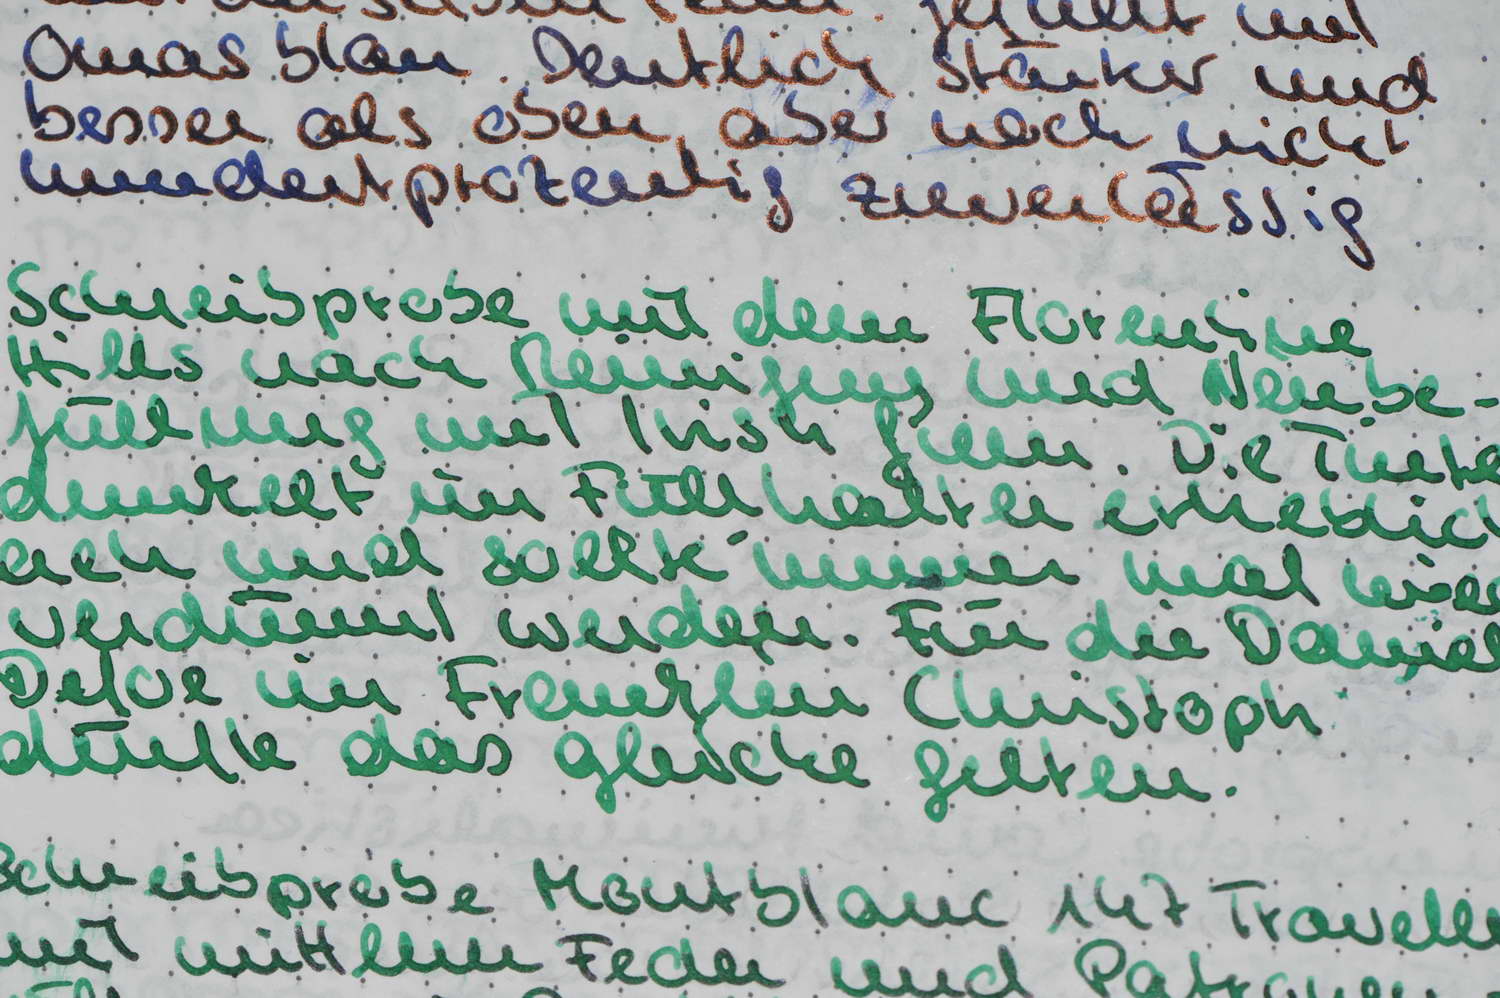 derselben Feder gefüllt mit
Omasblau. Deutlich stärker und
besser als oben, aber noch nicht
hundertprozentig zuverlässig
Schreibprobe mit dem Florentine
Hills nach Reinigung und Neube-
füllung mit Irish Green. Die Tinte
dunkelt im Füllhalter erheblich
ach und sollte immer mal wied
verdünnt werden. Für die Daniel
Defoe im Franklin Christoph
dürfte das gleiche gelten.
Schreibprobe Montblanc 147 Traveller
mit mittlerer Feder und Patronen